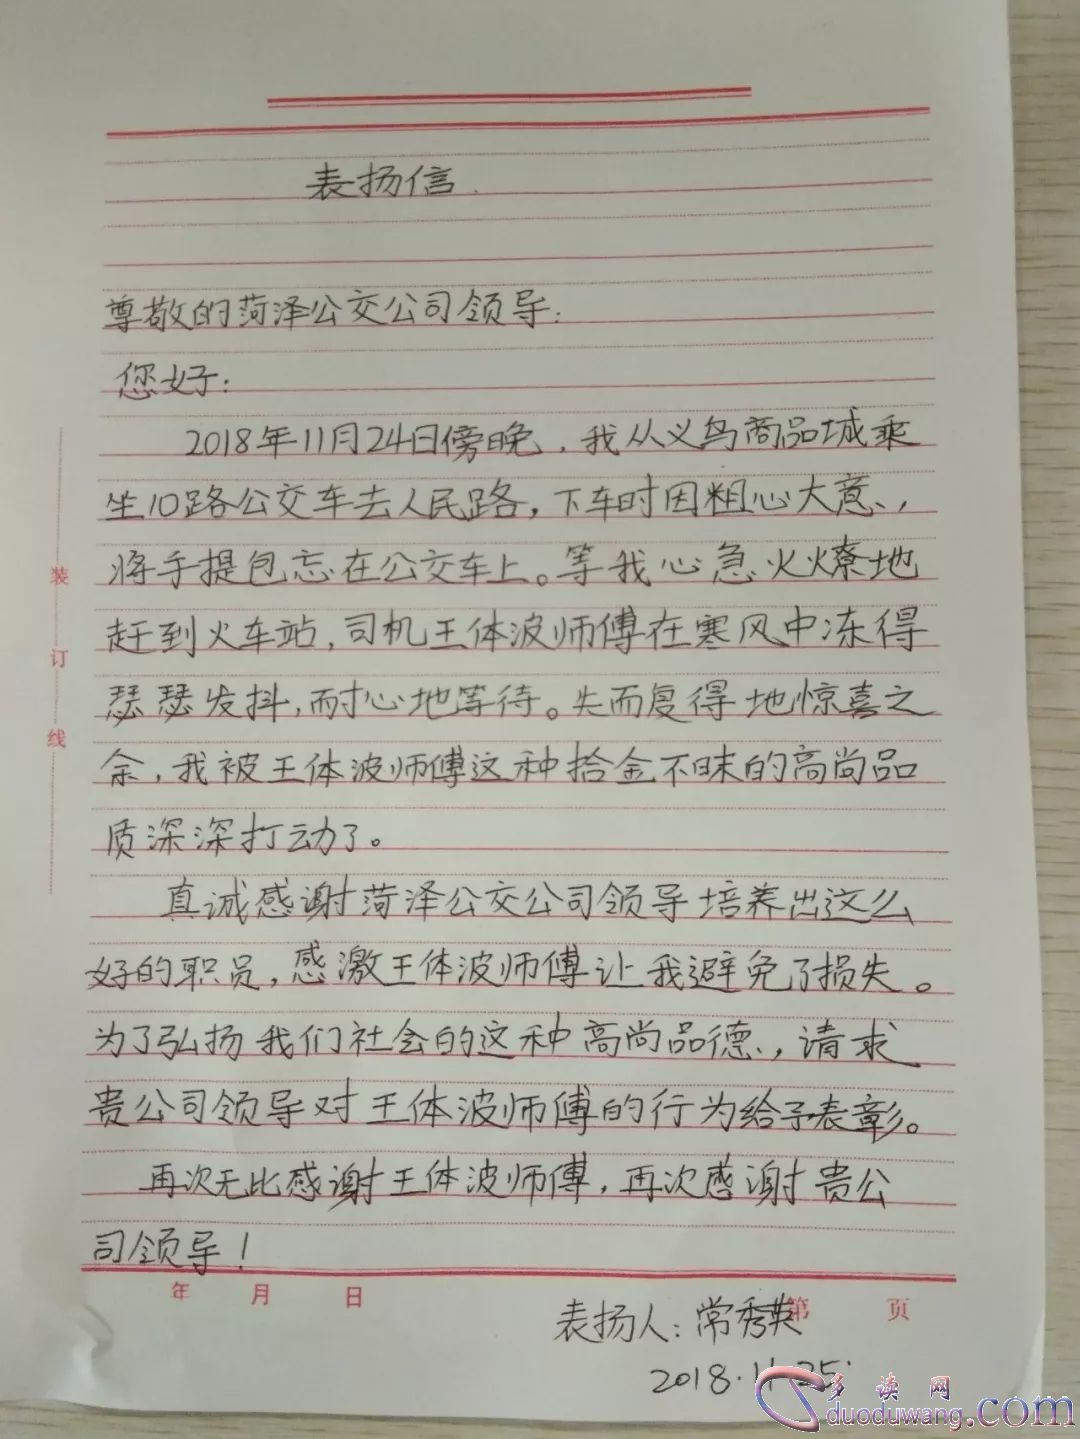 表扬信.
尊敬的菏泽公交公司领导:
您好:
2018年11月24日傍晚,我从义乌商品城乘
坐10路公交车去人民路,下车时因粗心大意,
将手提包忘在公交车上。等我心急火燎地
赶到火车站,司机王体波师傅在寒风中冻得
瑟瑟发抖,耐心地等待。失而复得地惊喜之
余,我被王体波师傅这种拾金不昧的高尚品
质深深打动了。
真诚感谢菏泽公交公司领导培养出这么
好的职员,感激王体波师傅让我避免了损失。
为了弘扬我们社会的这种高尚品德,请求
贵公司领导对王体波师傅的行为给予表彰。
再次无比感谢王体波师傅,再次感谢贵公
司领导!
装
订
线
年 月 日
第 页
表扬人:常秀英
2018.11.25
多读网
duoduwang.com